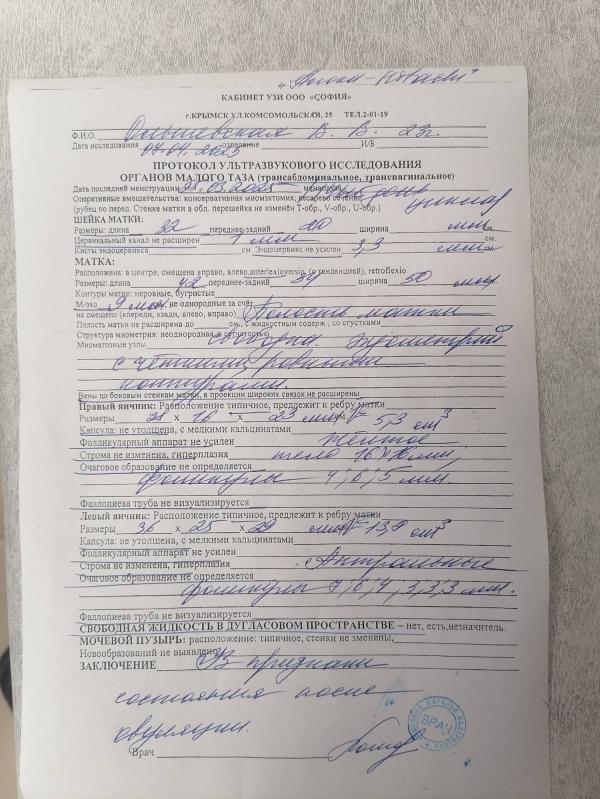 КАБИНЕТ УЗИ ООО «СОФИЯ»
г.КРЫМСК УЛ.КОМСОМОЛЬСКАЯ, 25 ТЕЛ.2-01-19
Ф.И.О. В. В. 23г.
Дата исследования 04.04.2025 отделение И/Б
ПРОТОКОЛ УЛЬТРАЗВУКОВОГО ИССЛЕДОВАНИЯ
ОРГАНОВ МАЛОГО ТАЗА (трансабдоминальное, трансвагинальное)
Дата последней менструации менопауза день цикла
Оперативные вмешательства: консервативная миомэктомия, кесарево сечение
(рубец по перед. Стенке матки в обл. перешейка не изменён Т-обр., V-обр., U-обр.)
ШЕЙКА МАТКИ:
Размеры: длина 32 переднее-задний 20 ширина мм см.
Цервикальный канал не расширен 1 мм см.
Кисты эндоцервикса см. Эндоцервикс не усилен 3,3 мм см.
МАТКА:
Расположена: в центре, смещена вправо, влево, anteflexioversia, (с тенденцией), retroflexio
Размеры: длина 42 переднее-задний ширина 50 мм
Контуры матки: неровные, бугристые
М-эхо 9 мм. не однородные за счёт
не смещено (кпереди, кзади, влево, вправо) Полость матки
Полость матки не расширена до см, с жидкостным содерж.; со сгустками
Структура миометрия: неоднородная с сетчатостью
Миоматозные узлы свободна. Эндометрий
с чёткими ровными
контурами.
Вены по боковым стенкам матки, в проекции широких связок не расширены
Правый яичник: Расположение типичное, предлежит к ребру матки
Размеры х х 23 мм V= 5,3 см³
Капсула: не утолщена, с мелкими кальцинатами
Фолликулярный аппарат не усилен Жёлтое
Строма не изменена, гиперплазия тело 16х16мм,
Очаговое образование не определяется
фолликулы 4,6,5 мм.
Фаллопиева труба не визуализируется
Левый яичник: Расположение типичное, предлежит к ребру матки
Размеры 36 х 25 х 29 мм V= 13,9 см³
Капсула: не утолщена, с мелкими кальцинатами
Фолликулярный аппарат не усилен
Строма не изменена, гиперплазия Антральные
Очаговое образование не определяется
фолликулы 7,6,4,3,3,3 мм.
Фаллопиева труба не визуализируется
СВОБОДНАЯ ЖИДКОСТЬ В ДУГЛАСОВОМ ПРОСТРАНСТВЕ – нет, есть, незначитель.
МОЧЕВОЙ ПУЗЫРЬ: расположение: типичное, стенки не изменены,
Новообразований не выявлено
ЗАКЛЮЧЕНИЕ ЭХ признаки
состояния после
овуляции.
Врач
ВРАЧ